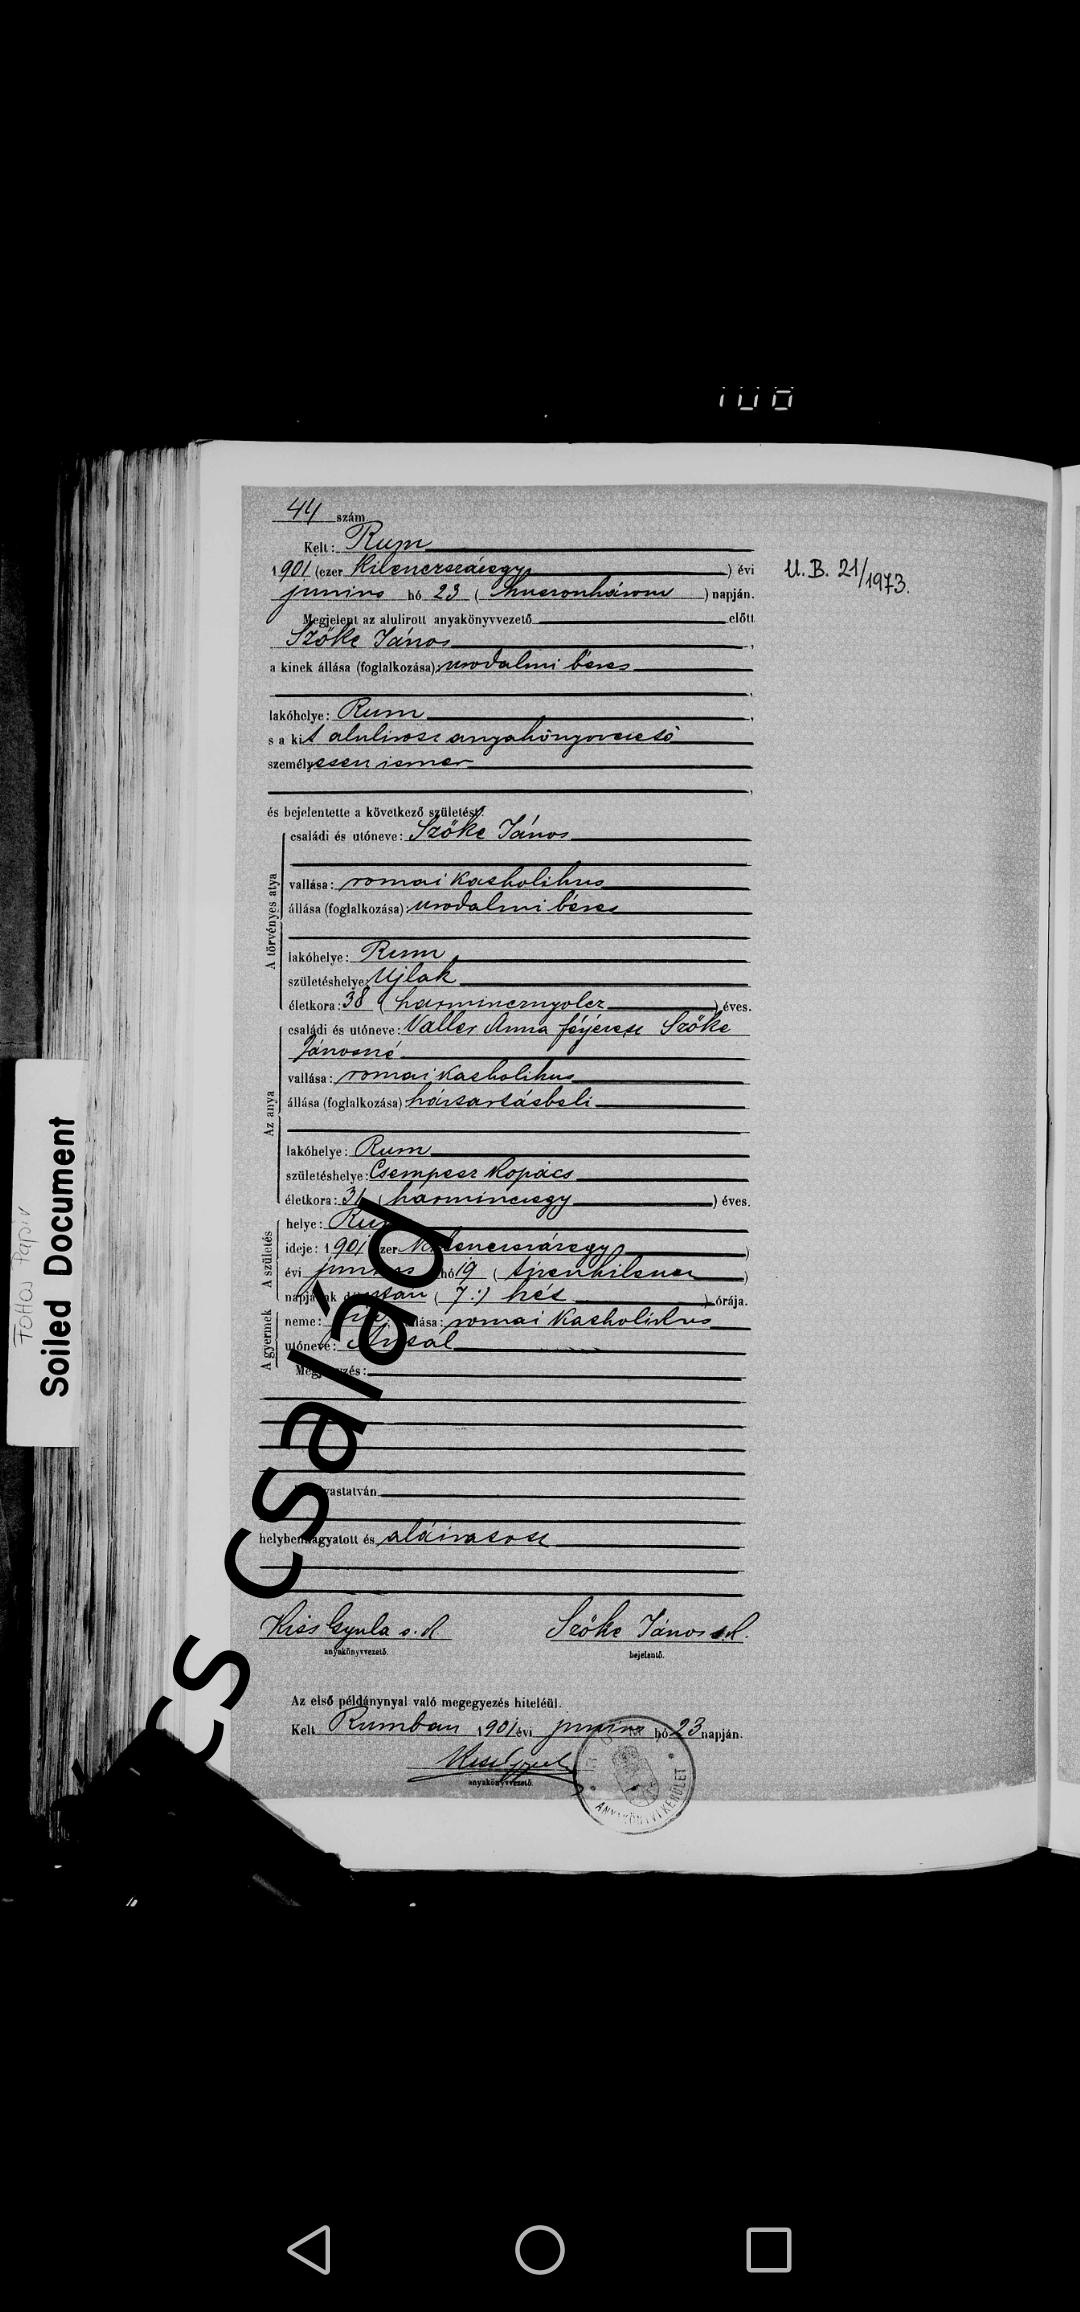 108
44 szám
Kelt: Rum
1901 (ezer kilencszázegy) évi
junius hó 23 (huszonhárom) napján.
U. B. 21/1973.
Megjelent az alulirott anyakönyvvezető előtt
Szőke János,
a kinek állása (foglalkozása): uradalmi béres
lakóhelye: Rum,
s a kit alulirott anyakönyvvezető
személyesen ismer
és bejelentette a következő születést:
A törvényes atya
családi és utóneve: Szőke János
vallása: romai katholikus
állása (foglalkozása): uradalmi béres
lakóhelye: Rum
születéshelye: Ujlak
életkora: 38 (harmincznyolcz) éves.
Az anya
családi és utóneve: Valler Anna férjezett Szőke
Jánosné
vallása: romai katholikus
állása (foglalkozása): háztartásbeli
lakóhelye: Rum
születéshelye: Csempesz Kopács
életkora: 31 (harminczegy) éves.
A születés
helye: Rum
ideje: 1901 ezer kilencszázegy)
évi junius hó 19 (tizenkilencz)
(7:) hét) órája.
A gyermek
neme: vallása: romai katholikus
utóneve: Antal
Megjegyzés:
helybenhagyatott és aláiratott
Kiss Gyula s. k. Szőke János s. k.
anyakönyvvezető. bejelentő.
Az első példánynyal való megegyezés hiteléül.
Kelt Rumban 1901 évi junius hó 23 napján.
Kiss Gyula
anyakönyvvezető.
RUM
ANYAKÖNYVI KERÜLET
Soiled Document
Tohos Papiv
cs család